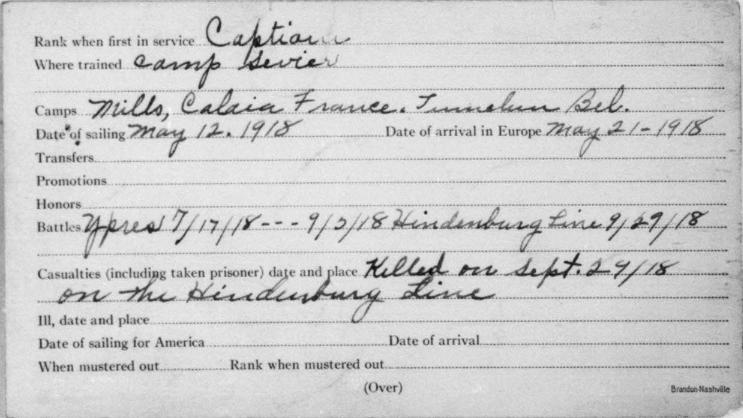 Rank when first in service Captian
Where trained Camp Sevier
Camps Mills, Calaia France. Tunnelun Bel.
Date of sailing May 12. 1918 Date of arrival in Europe May 21-1918
Transfers
Promotions
Honors
Battles Ypres 7/17/18 --- 9/2/18 Hindenburg Line 9/29/18
Casualties (including taken prisoner) date and place Killed on Sept. 29/18
on the Hindenburg Line
Ill, date and place
Date of sailing for America Date of arrival
When mustered out Rank when mustered out
(Over)
Brandon-Nashville